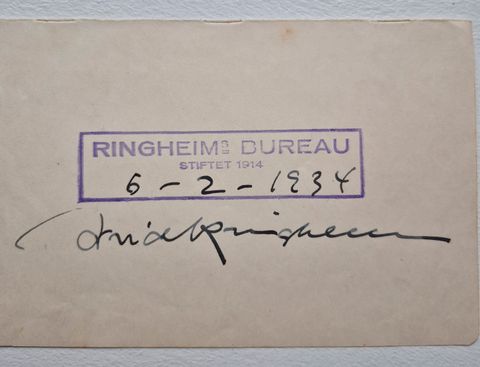 RINGHEIMS BUREAU
STIFTET 1914
6 - 2 - 1934
Ringheim